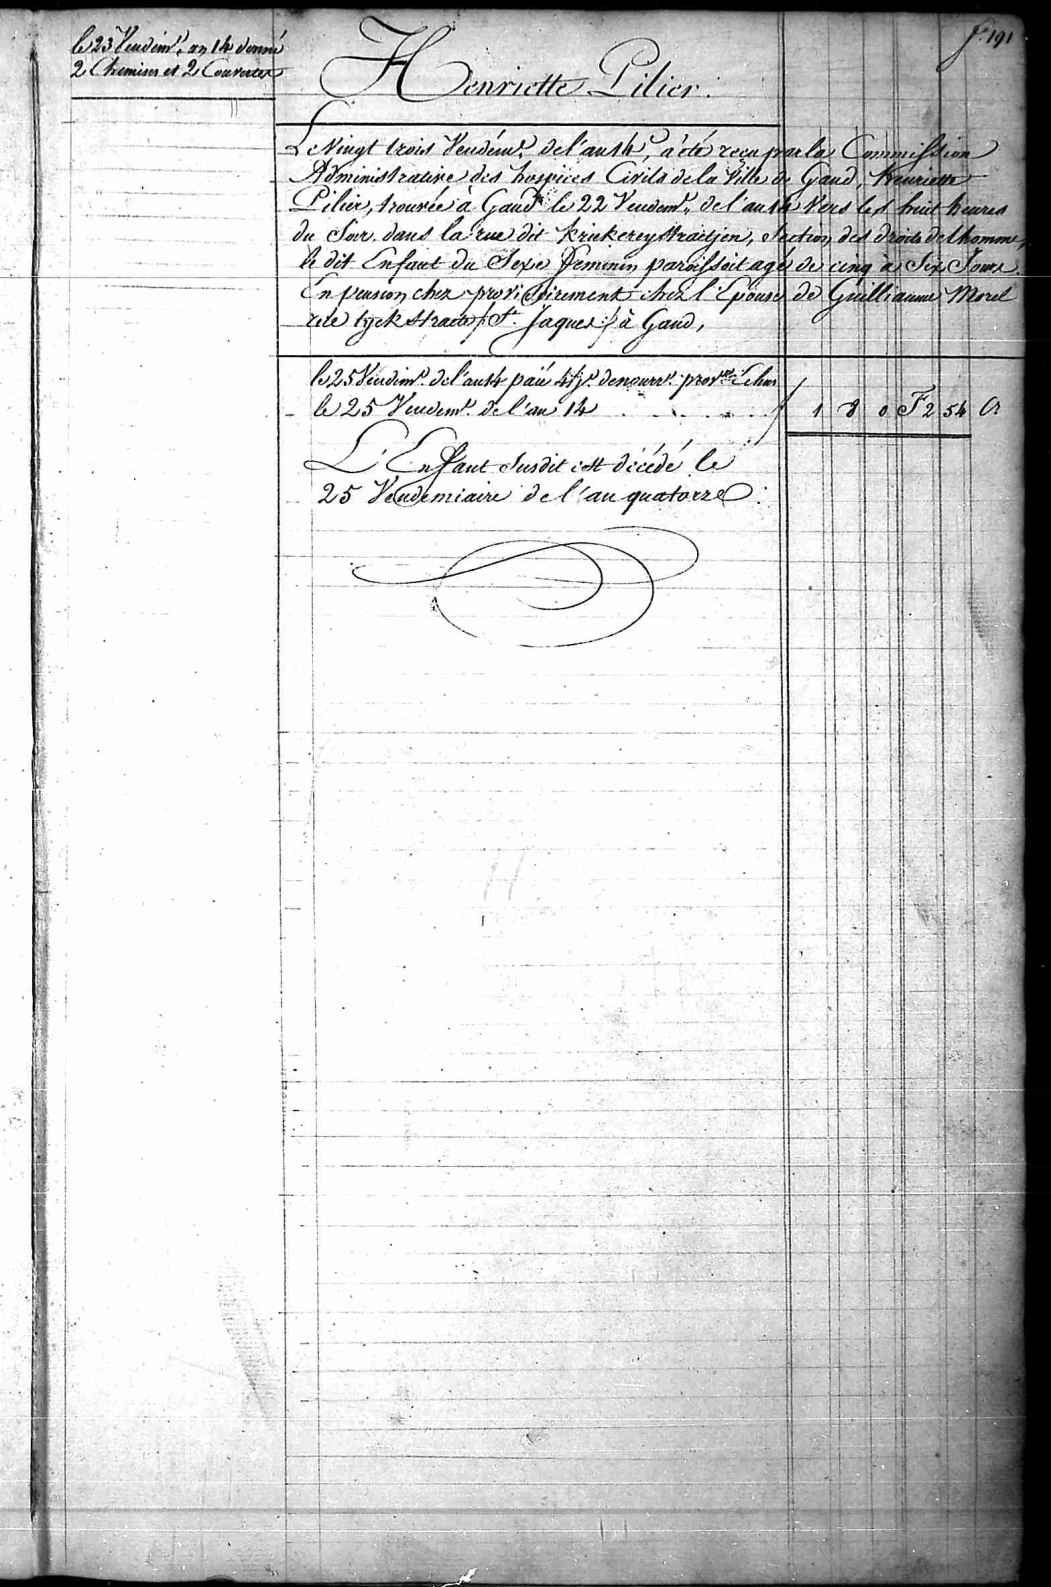 f.° 191
le 23 Vendém.re an 14 donné
2 Chemises et 2 Couvertes
Henriette Pilier.
Le Vingt trois Vendém.re de l'an 14, a été reçu par la Commission
Administrative des hospices Civils de la Ville de Gand, henriette
Pilier, trouvée à Gand le 22 Vendem.re de l'an 14 Vers les huit heures
du Soir dans la rue dit Krukereystraetjen, Section des droits de l'homme,
le dit Enfant du Sexe feminin paroissoit agé de cinq a Six Jours.
En pension chez provisoirement chez l'Epouse de Guilliaume Morel
rue tyck straete /: S.t Jaques :/ à Gand,
le 25 Vendem.re de l'an 14 païé de nourr.e prov.re échus
le 25 Vendem.re de l'an 14 . . . . 1 8 0 F 2 54 Cs
L'Enfant Susdit est décédé le
25 Vendemiaire de l'an quatorze.